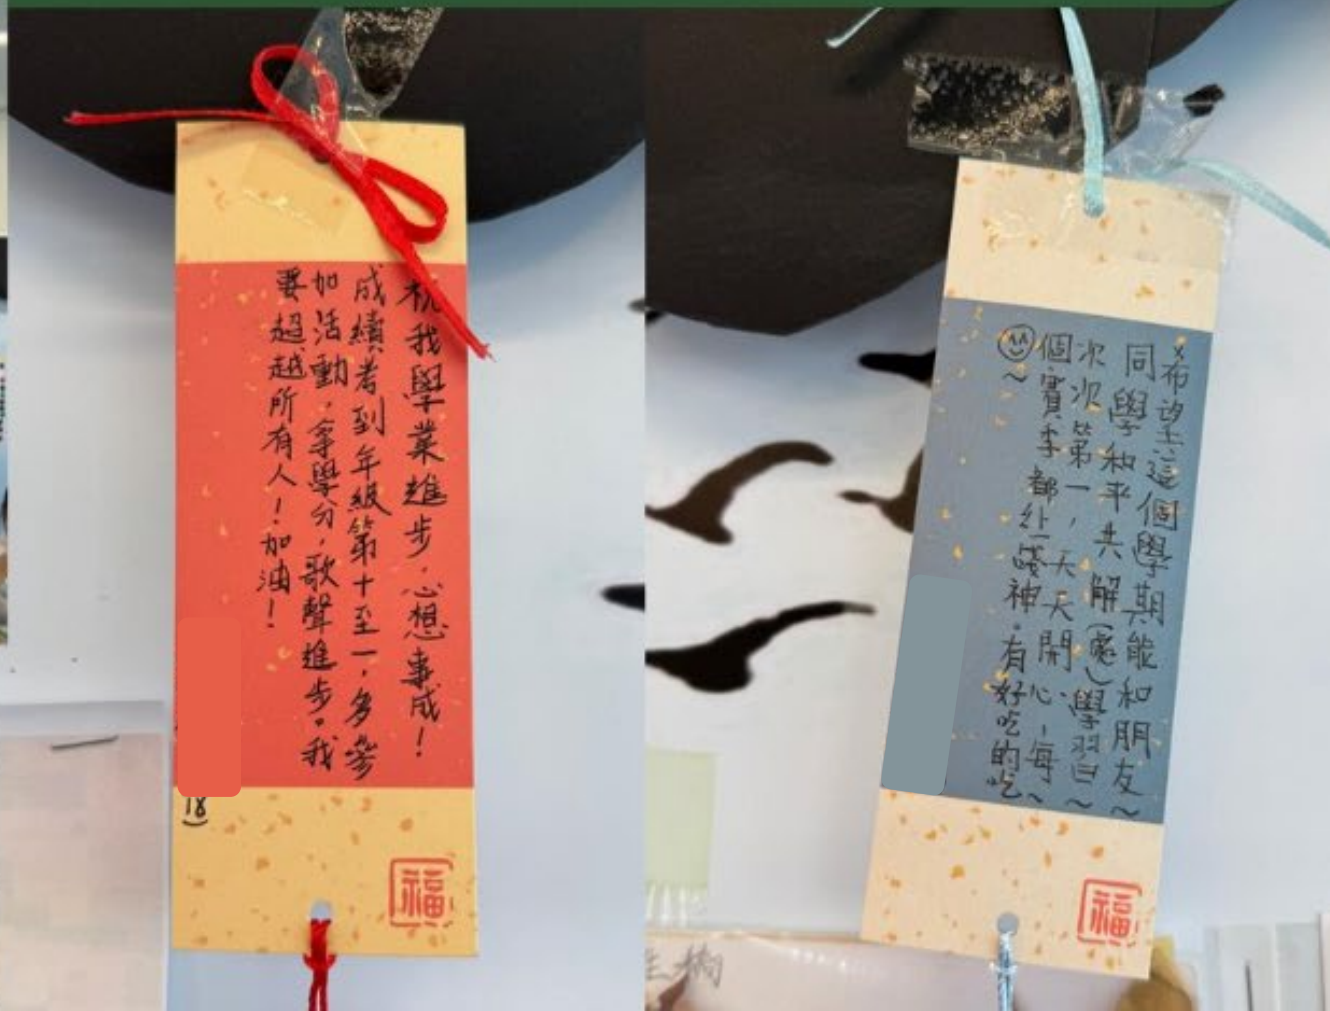 祝我學業進步，心想事成！
成績考到年級第十至一，多參
加活動，拿學分，歌聲進步。我
要超越所有人！加油！
18)
福
希望這個學期能和朋友~
同學和平共解(處)學習曰~
次次第一，天天開心，每~
個賽季都上踐神。有好吃的吃
~
福
生